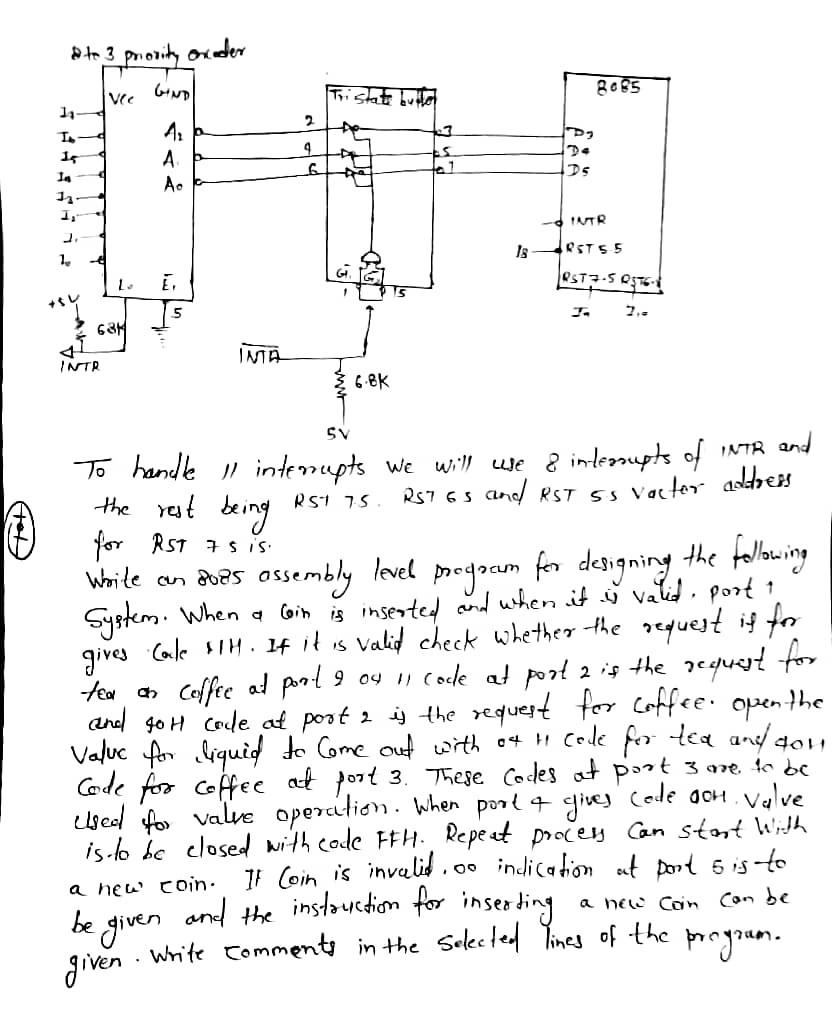 8 to 3 priority encoder
Vcc GND
I7
I6
I5
I4
I3
I2
I1
I0
A2
A1
A0
E1
5
+5V
68K
INTR
Tri state buffer
2
4
6
3
5
7
G1 G2
1 15
INTA
6.8K
5V
8085
D3
D4
D5
INTR
I8 RST 5.5
RST 7.5 RST6.5
I10
To handle 11 interrupts we will use 8 interrupts of INTR and
the rest being RST 7.5. RST 6 5 and RST 5 5 Vactor address
for RST 7 5 is.
Write an 8085 assembly level program for designing the following
System. When a Coin is inserted and when it is valid, port 1
gives Code 11H. If it is valid check whether the request is for
tea or coffee at port 2 04 H code at port 2 is the request for
and 40H code at port 2 is the request for coffee. open the
Value for liquid to Come out with 04 H code for tea and 40H
Code for coffee at port 3. These Codes at port 3 are to be
used for valve operation. When port 4 gives code 00H. Valve
is to be closed with code FFH. Repeat process Can start With
a new coin. If Coin is invalid, 00 indication at port 5 is to
be given and the instruction for inserting a new Coin can be
given. Write Comments in the Selected lines of the program.